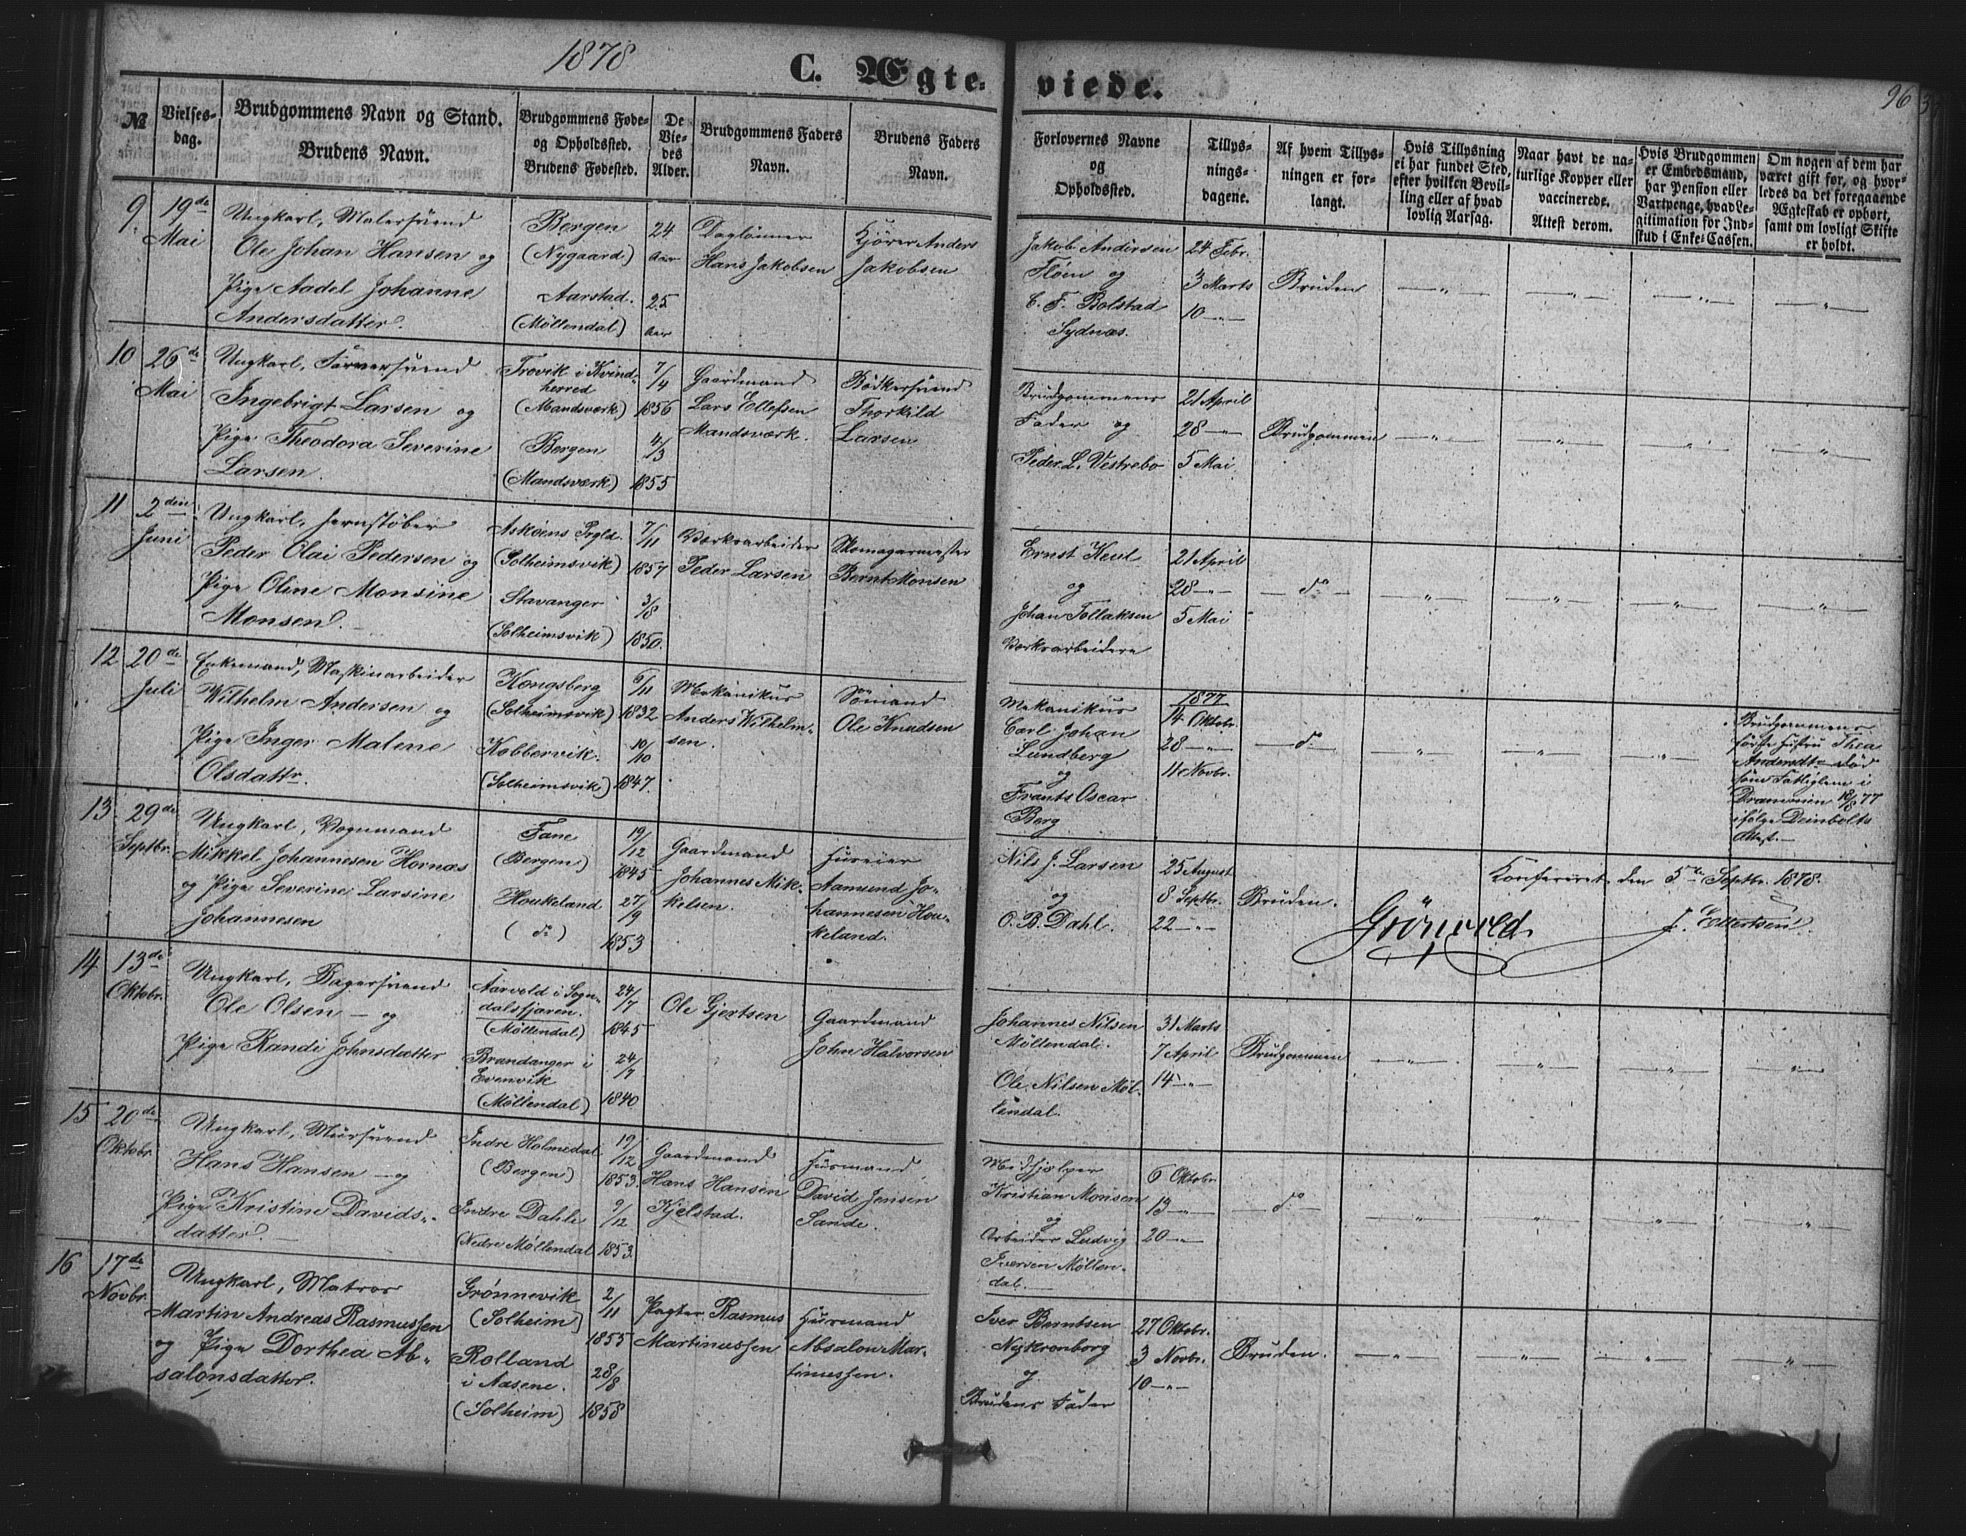 1878
C. Ægteviede.
96
№
Vielsesdag.
Brudgommens Navn og Stand.
Brudens Navn.
Brudgommens Føde- og Opholdssted.
Brudens Fødested.
De Viedes Alder.
Brudgommens Faders Navn.
Brudens Faders Navn.
Forlovernes Navne og Opholdssted.
Tillysningsdagene.
Af hvem Tillysningen er forlangt.
Hvis Tillysning ei har fundet Sted, efter hvilken Bevilling eller af hvad lovlig Aarsag.
Naar havt de naturlige Kopper eller vaccinerede. Attest derom.
Hvis Brudgommen er Embedsmand, har Pension eller Vartpenge, hvad Legitimation for Indstud i Enke-Cassen.
Om nogen af dem har været gift før, og hvorledes da det foregaaende Ægteskab er ophørt, samt om lovligt Skifte er holdt.
9.
19de Mai
Ungkarl, Malersvend
Ole Johan Hansen og
Pige Aadel Johanne
Andersdatter.
Bergen
(Nygaard)
Aarstad.
(Møllendal)
24 Aar
25 Aar
Daglønner
Hans Jakobsen
Kjører Anders
Jakobsen
Jakob Andersen
Fløen og
C. F. Bolstad
Sydnæs.
24 Febr.
3 Marts
10 -"-
Bruden
10
26de Mai
Ungkarl, Farversvend
Ingebrigt Larsen og
Pige Theodora Severine
Larsen.
Trovik i Kvindherred
(Mandsværk)
Bergen
(Mandsværk)
7/4 1856
4/3 1855
Gaardmand
Lars Ellefsen
Mandsværk.
Bødkersvend
Thorkild
Larsen
Brudgommens
Fader og
Peder L. Vestrebo
21 April
28 -"-
5 Mai
Brudgommen
11
2den Juni
Ungkarl, Jernstøber
Peder Olai Pedersen og
Pige Oline Monsine
Monsen.
Askøens Prgld.
(Solheimsvik)
Stavanger
(Solheimsvik)
7/11 1857
3/8 1850.
Værksarbeider
Peder Larsen
Skomagermester
Bernt Monsen
Ernst Keul
og
Johan Tollaksen
Værksarbeidere
21 April
28 -"-
5 Mai
do
12
20de Juli
Enkemand, Maskinarbeider
Wilhelm Andersen og
Pige Inger Malene
Olsdattr.
Kongsberg
(Solheimsvik)
Kobbervik.
(Solheimsvik)
6/11 1832
10/10 1847.
Mekanikus
Anders Wilhelmsen.
Sömand
Ole Knudsen
Mekanikus
Carl Johan
Lundberg
og
Frants Oscar
Berg
1877
14 Oktobr.
28 -"-
11 Novbr.
do
Brudgommens
første Hustru Thea
Andersdtr død
som Fattiglem i
Drammen 18/8 77
ifølge Deinbolts
Attest.
13
29de Septbr.
Ungkarl, Vognmand
Mikkel Johannesen Hornæs
og Pige Severine Larsine
Johannesen
Fane
(Bergen)
Houkeland
(do)
19/12 1845
27/9 1853
Gaardmand
Johannes Mikkelsen.
Huseier
Aamund Johannesen Houkeland.
Nils J. Larsen
og
O. B. Dahl.
25 August
8 Septbr.
22 -"-
Bruden.
Konfereret den 5te Septbr. 1878.
Grönvold
J. Ellertsen
14
13de Oktobr.
Ungkarl, Bagersvend
Ole Olsen - og
Pige Randi Johnsdatter
Aarvold i Sogndalsfjæren.
(Møllendal)
Brandanger i
Evenvik
(Møllendal)
24/7 1845
24/7 1840
Ole Gjertsen
Gaardmand
John Halvorsen
Johannes Nilsen
Møllendal.
Ole Nilsen Møllendal.
31 Marts
7 April
14 -"-
Brudgommen
15
20de Oktobr.
Ungkarl, Mursvend
Hans Hansen - og
Pige Kristine Davidsdatter.
Indre Holmedal
(Bergen)
Indre Dahle
(Nedre Møllendal)
19/12 1853.
9/12 1853.
Gaardmand
Hans Hansen
Kjelstad.
Husmand
David Jensen
Sande.
Medhjælper
Kristian Monsen
og
Arbeider Ludvig
Iversen Møllendal.
6 Oktobr.
13 -"-
20 -"-
do
16
17de Novbr.
Ungkarl, Matros
Martin Andreas Rasmussen
og Pige Dorthea Absalonsdatter.
Grønnevik
(Solheim)
Rolland
i Aasene.
(Solheim)
2/11 1855
28/8 1858
Pagter Rasmus
Martinussen
Husmand
Absalon Martinussen.
Iver Berntsen
Nykronborg
og
Brudens Fader
27 Oktobr.
3 Novbr.
10 -"-
Bruden.